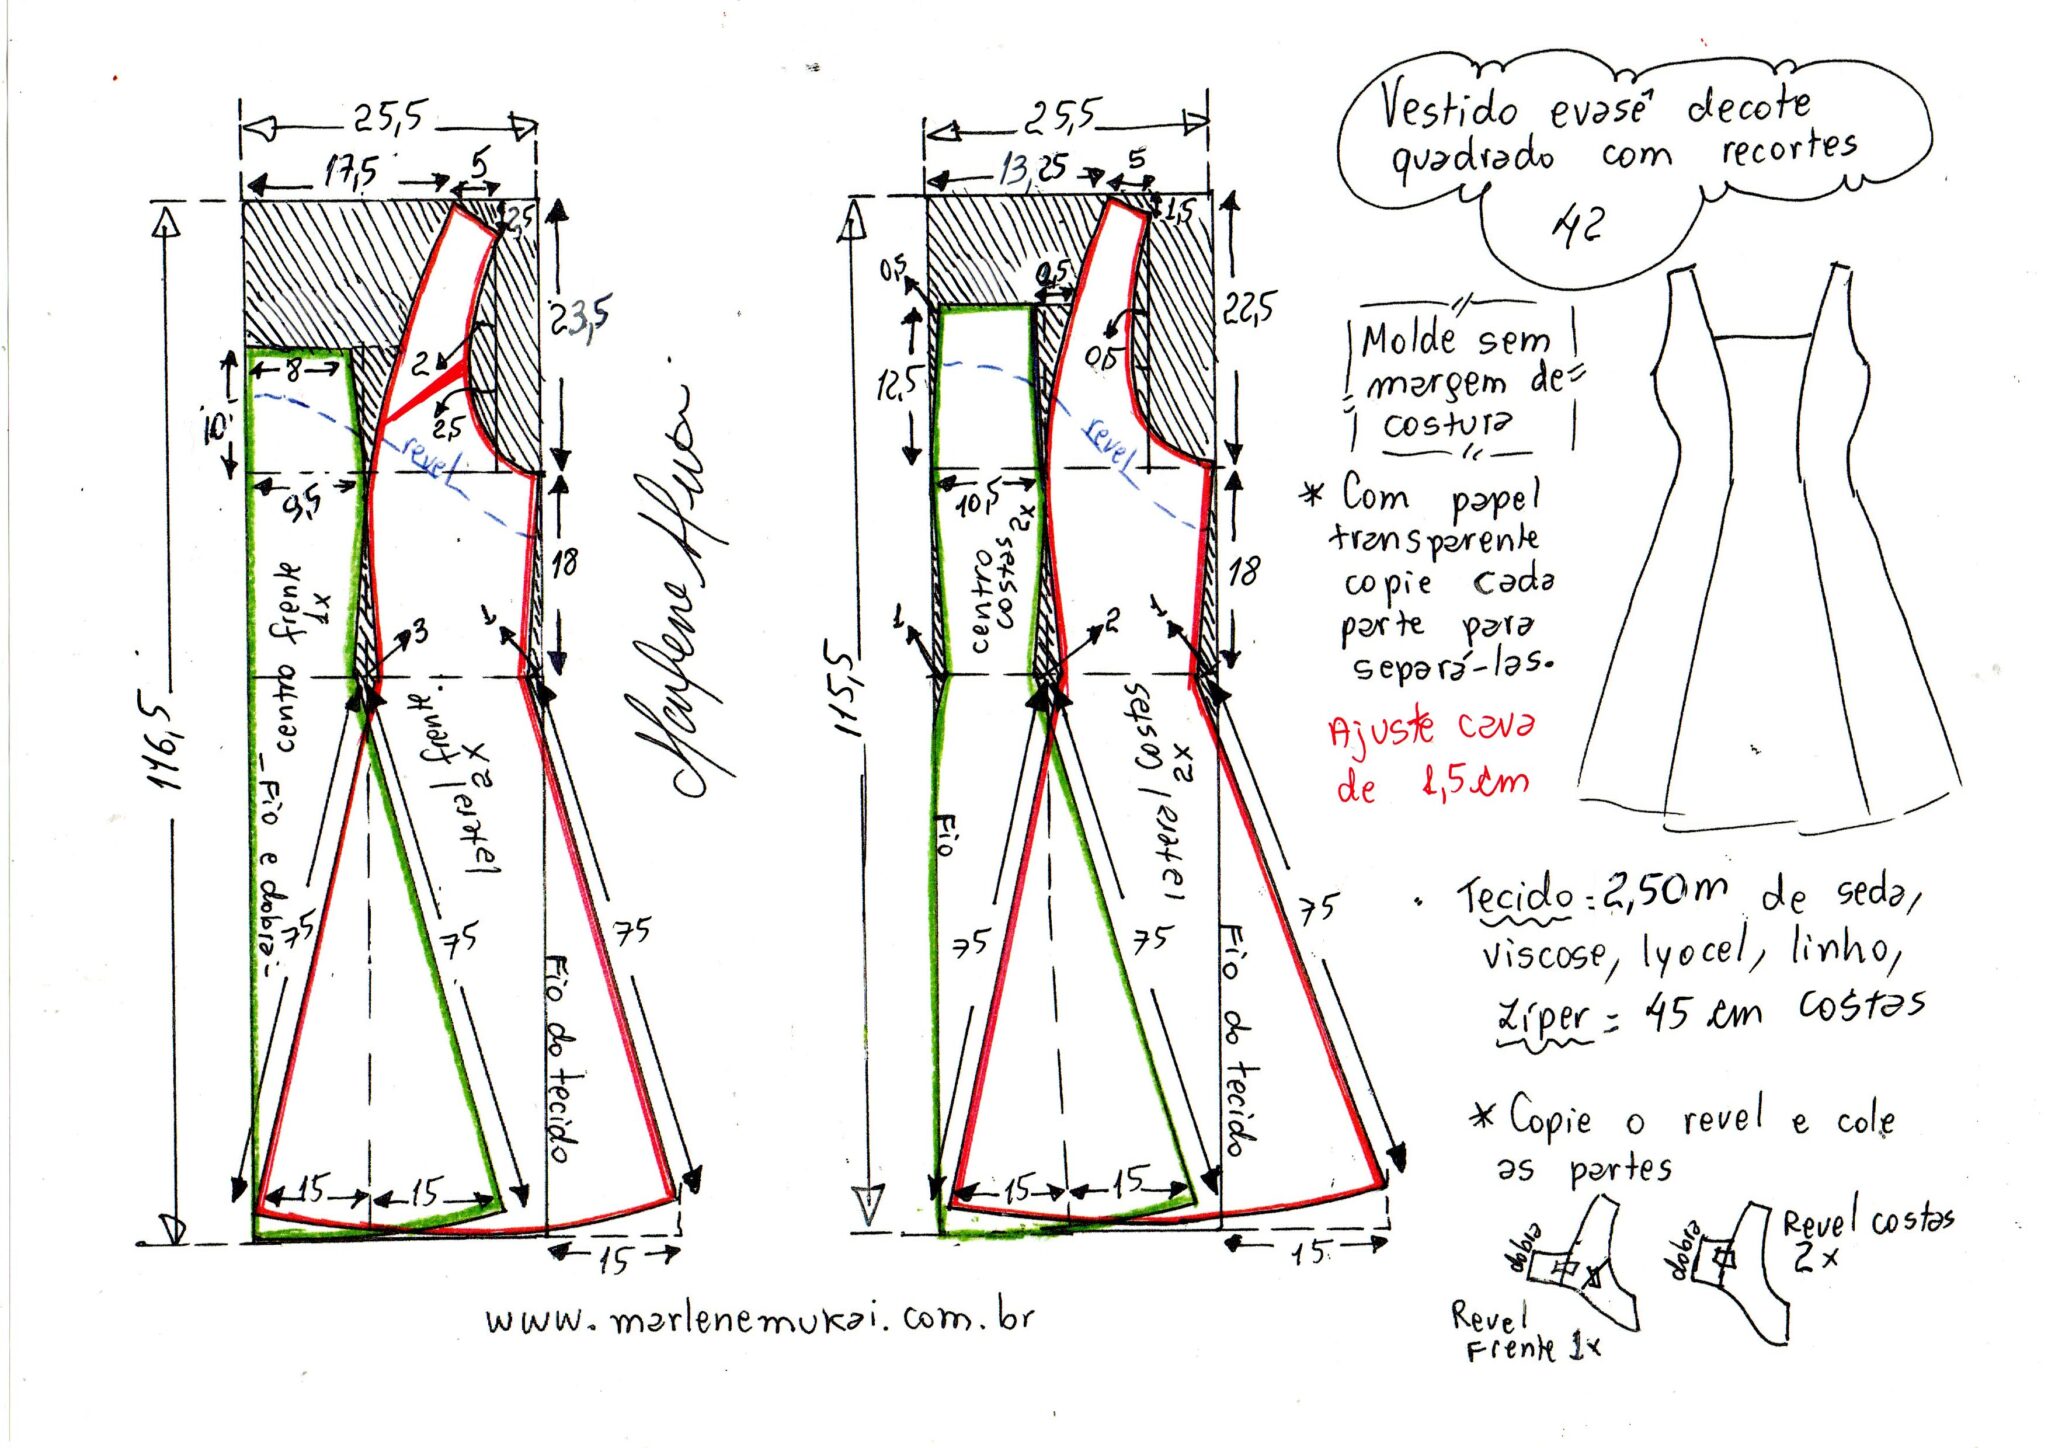 25,5
17,5
5
2,5
23,5
2
2,5
8
10
revel
9,5
18
centro frente
1x
3
1
116,5
Fio e dobra
lateral frente
2x
75
75
75
Fio do tecido
15
15
15
Marlene Mukai
25,5
13,25
5
1,5
0,5
0,5
22,5
12,5
0,5
revel
10,5
centro
costas 2x
18
1
2
1
115,5
lateral costas
2x
Fio
75
75
75
Fio do tecido
15
15
15
www.marlenemukai.com.br
Vestido evasê decote
quadrado com recortes
42
Molde sem
margem de
costura
* Com papel
transparente
copie cada
parte para
separá-las.
Ajuste cava
de 1,5cm
Tecido: 2,50m de seda,
viscose, lyocel, linho,
Zíper = 45 cm costas
* Copie o revel e cole
as partes
dobra
Revel
Frente 1x
dobra
Revel costas
2x